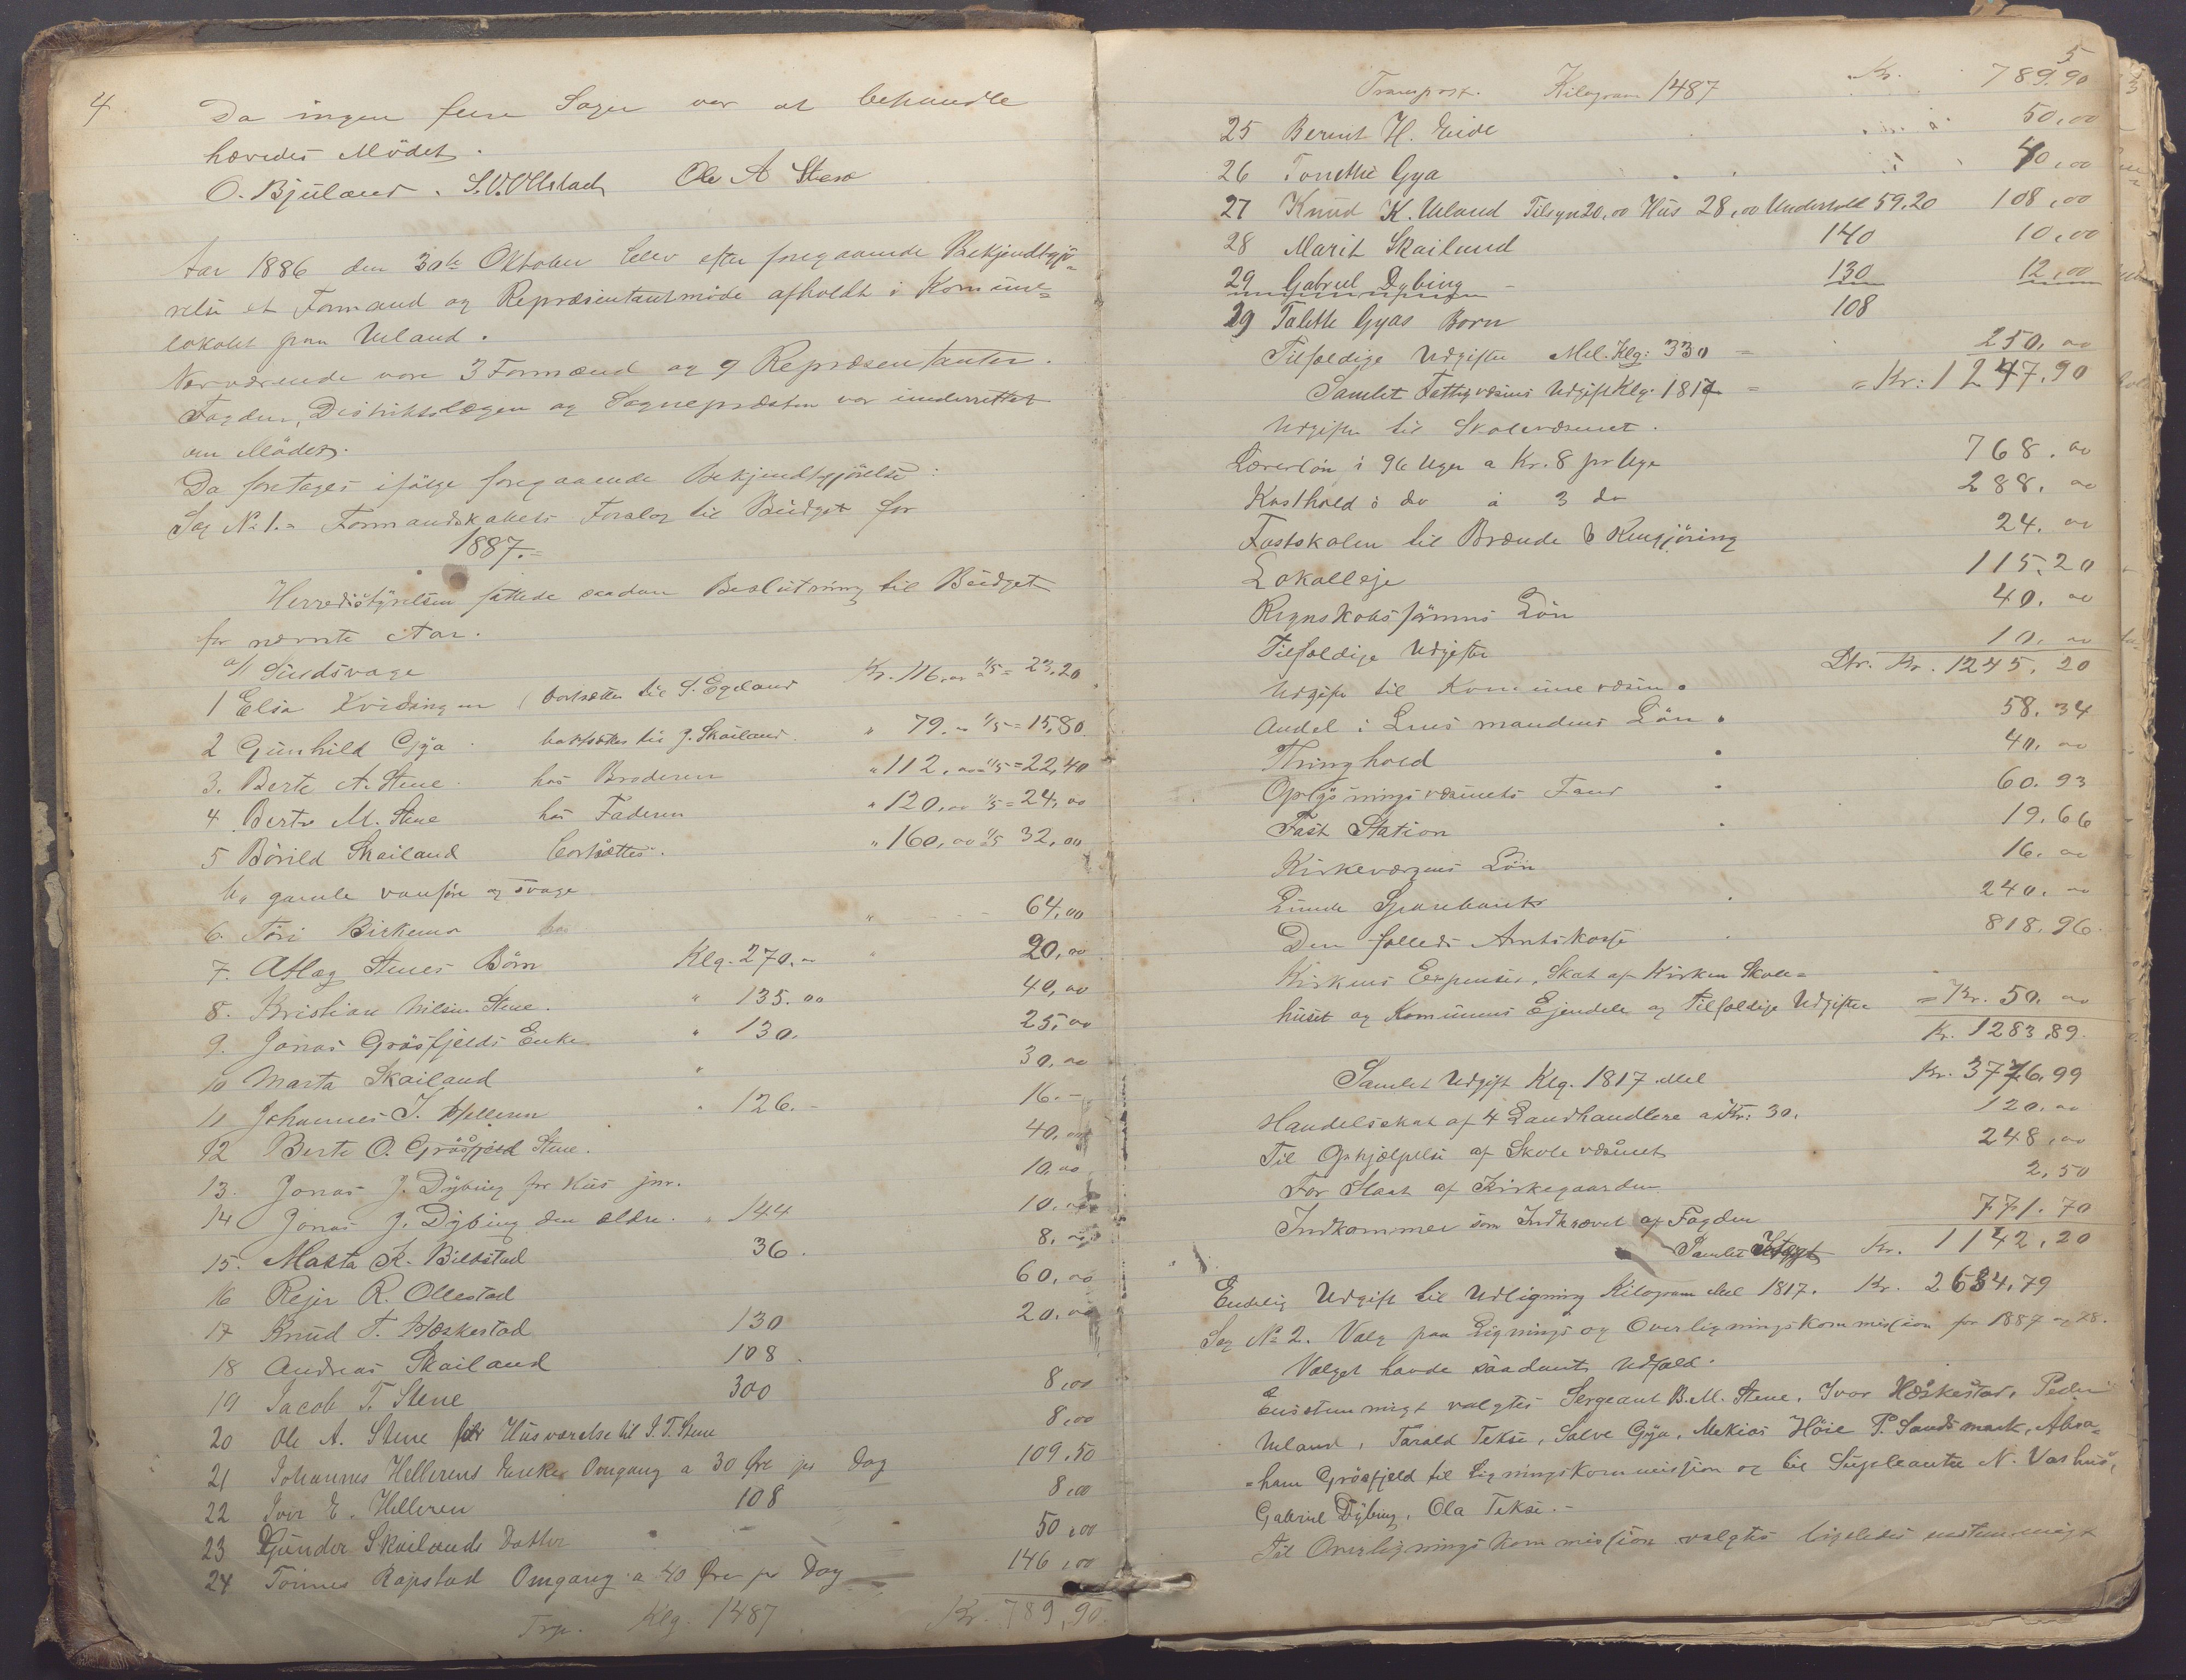 4
Da ingen flere Sager var at behandle
hævedes Mödet.
O. Bjuland. S. V. Ollestad Ole A Stene
Aar 1886 den 30te Oktober blev efter foregaaende Bekjendtgjö=
relse et Formand og Repræsentantmöde afholdt i Kommune=
lokalet paa Ueland.
Nærværende vare 3 Formænd og 9 Repræsentanter.
Fogden, Distriktslægen og Sognepræsten var underrettet
om Mödet.
Da foretages ifölge foregaaende Bekjendtgjörelse:
Sag No 1. Formandskabets Forslag til Budget for
1887.=
Herredsstyrelsen fattede saadan Beslutning til Budget
for nævnte Aar.
a/ Sindsvage
1 Elsa Kvidingen ( bortsættes til S. Egeland Kr. 116,00 1/5 = 23,20
2 Gunhild Gya bortsættes til J. Skailand. " 79.00 1/5 = 15,80
3. Berte A. Stene hos Broderen " 112,00 1/5 = 22,40
4 Berte M. Stene hos Faderen " 120,00 1/5 = 24,00
5 Börild Skailand bortsættes. " 160,00 1/5 32,00
b, gamle vanföre og svage
6. Töri Birkemo hos " 64,00
7. Atlag Stenes Börn Klg. 270.00 " 20,00
8. Kristian Nilsen Stene. " 135.00 40,00
9. Jonas Grösfjelds Enke " 130. 25,00
10 Marta Skailand " 30,00
11 Johannes J. Helleren " 126.- 16.-
12 Berte O. Grösfjeld Stene. 40,00
13. Jonas J. Dybing for Hus jnr. 10.00
14 Jonas J. Dybing den ældre. " 144 10.00
15. Marta K. Bilstad 36. 8,00
16 Rejer R. Ollestad 60,00
17 Knud T. Hæskestad 130 20,00
18 Andreas Skailand 108.
19 Jacob T. Stene 300 8,00
20 Ole A. Stene for Husværelse til J. T. Stene 8,00
21 Johannes Hellerens Enke Omgang a 30 Öre pr Dag 109.50
22 Iver E. Helleren 108 8,00
23 Gunder Skailands Datter 50,00
24 Tönnes Rapstad Omgang a 40 Öre pr Dag 146,00
Trp. Klg. 1487 Kr. 789,90.
5
Transport. Kilogram 1487 Kr. 789.90
25 Berent H. Eide 50,00
26 Tonette Gya 40,00
27 Knud K. Ueland Tilsyn 20,00 Hus 28,00 Underhold 59.20 108,00
28 Marit Skailand 140 10,00
29 Gabriel Dybing 130 12,00
29 Talette Gyas Born 108
Tilfældige Udgifter Mel. Klg: 330 = 250,00
Samlet Fattigvæsens Udgift Klg. 1817 = Kr: 1247.90
Udgifter til Skolevæsenet.
Lærerlön i 96 Uger a Kr. 8 pr Uge 768.00
Kosthold i do á 3 do 288.00
Fastskolen til Brænde & Rengjöring 24.00
Lokalleje 115.20
Regnskabsförerens Lön 40.00
Tilfældige Udgifter 10.00
Ltr. Kr. 1245.20
Udgifter til Kommunevæsen.
Andel i Lensmandens Lön. 58.34
Thinghold 40.00
Oplysningsvæsenets Fond 60.93
Fast Station 19.66
Kirkeværgens Lön 16.00
Lunde Sparebank 240.00
Den fælleds Amtskasse 818.96.
Kirkens Expenser, Skat af Kirken Skole=
huset og Kommunens Ejendele og Tilfældige Udgifter = Kr. 50.00
Kr. 1283.89.
Samlet Udgift Klg. 1817 Mel Kr. 3776.99
Handelsskat af 4 Landhandlere a Kr: 30. 120.00
Til Ophjælpelse af Skolevæsenet 248,00
For Slaat af Kirkegaarden 2,50
Indkommer som Indkrævet af Fogden 771.70
Samlet Kr. 1142.20
Endelig Udgift til Udligning Kilogram Mel 1817. Kr. 2634.79
Sag No 2. Valg paa Lignings og Overligningskommission for 1887 og 88.
Valget havde saadant Udfald.
Enstemmigt valgtes Sergeant B. M. Stene, Ivar Hæskestad, Peder
Ueland, Tarald Tekse, Salve Gya, Mekias Höie P. Sandsmark, Abra=
=ham Grösfjeld til Ligningskommission og til Supleanter N. Vashus,
Gabriel Dybing, Ola Tekse.-
Til Overligningskommission valgtes ligeledes enstemmigt